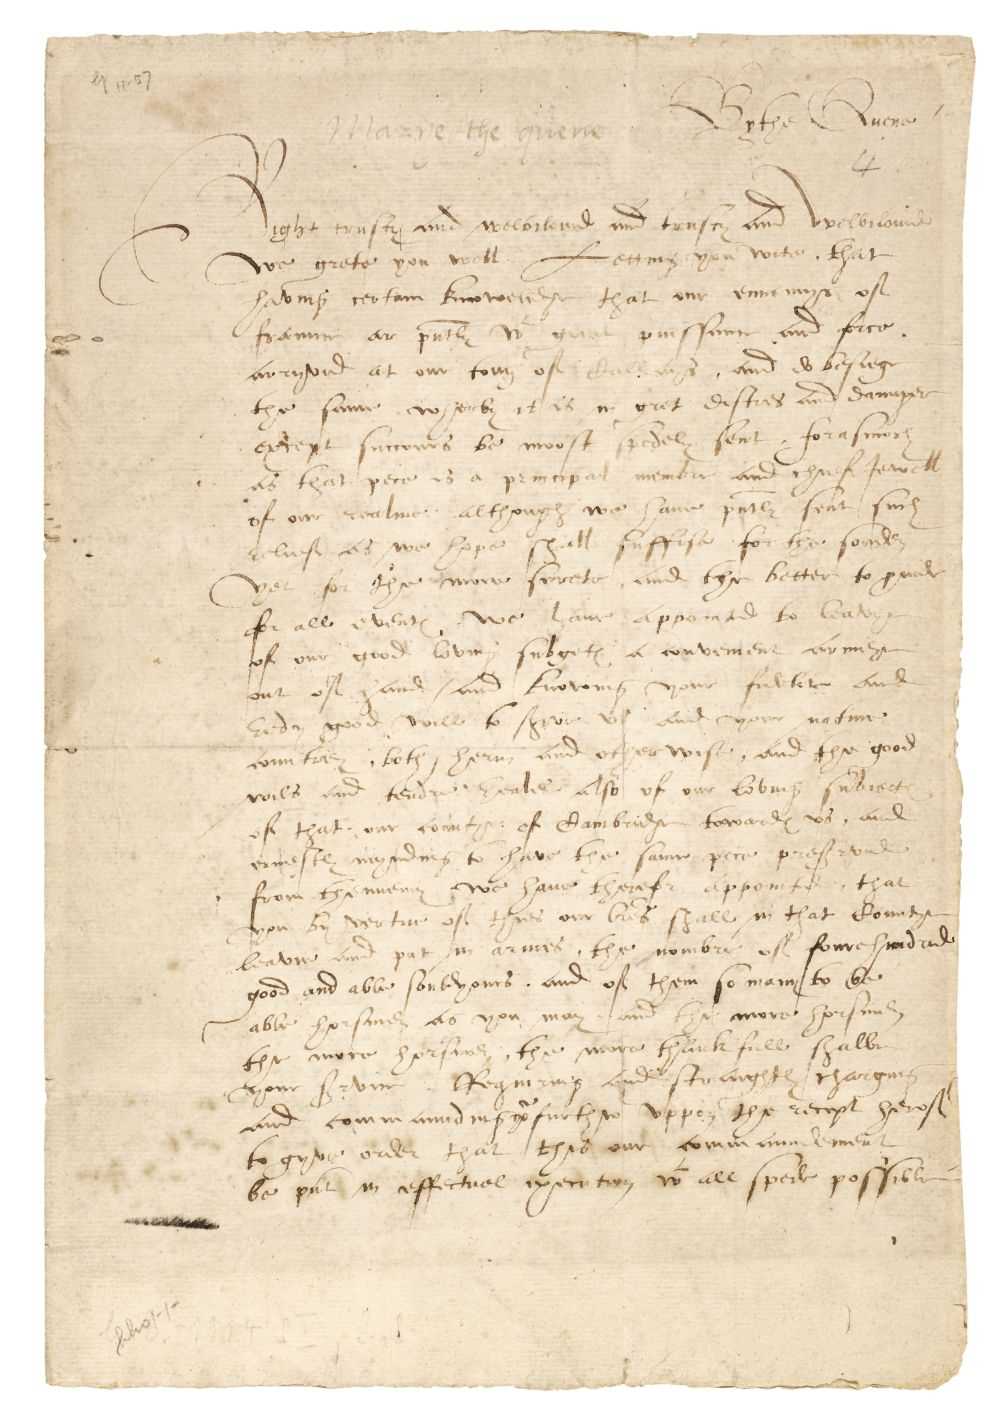 By the Quene
Marye the quene
4
Right trusty and welbeloved and trusty and welbeloved
We grete you well. Letting you wite, that
having certain knowelege that our ennemyes of
fraunce ar pntly wt great puissaunce and force
arryved at our town of Callays, and do besiege
the same wherby it is in gret distres and daunger
except succours be moost spedely sent, forasmuch
as that pece is a principal membre and chief Jewell
of our realme although we have pntly sent such
relief as we hope shall suffise for the soden
yet for the more suretie, and the better to pvide
for all events, We have appointed to leavye
of our good loving subgets a convenient armye
out of hand, and knowing your fidelitie and
redy good will to serve us and your native
countrey, both herin and otherwise, and the good
wils and tendre zeales also of our loving subiects
of that our countye of Cambridge towards us, and
ernestly mynding to have the same pece preserved
from thennemy We have therefor appointed, that
you by vertue of thies our lres shall in that Countye
leavie and put in armes, the nombre of foure hundred
good and able souldyours, and of them so many to be
able horsmen as you may, and the more horsmen
the more horsmen, the more thankfull shalbe
your service. Requiring and straightly charging
and commaunding you further uppon the receipt herof
to gyve order that this our commaundement
be put in effectuel execution wt all spede possible